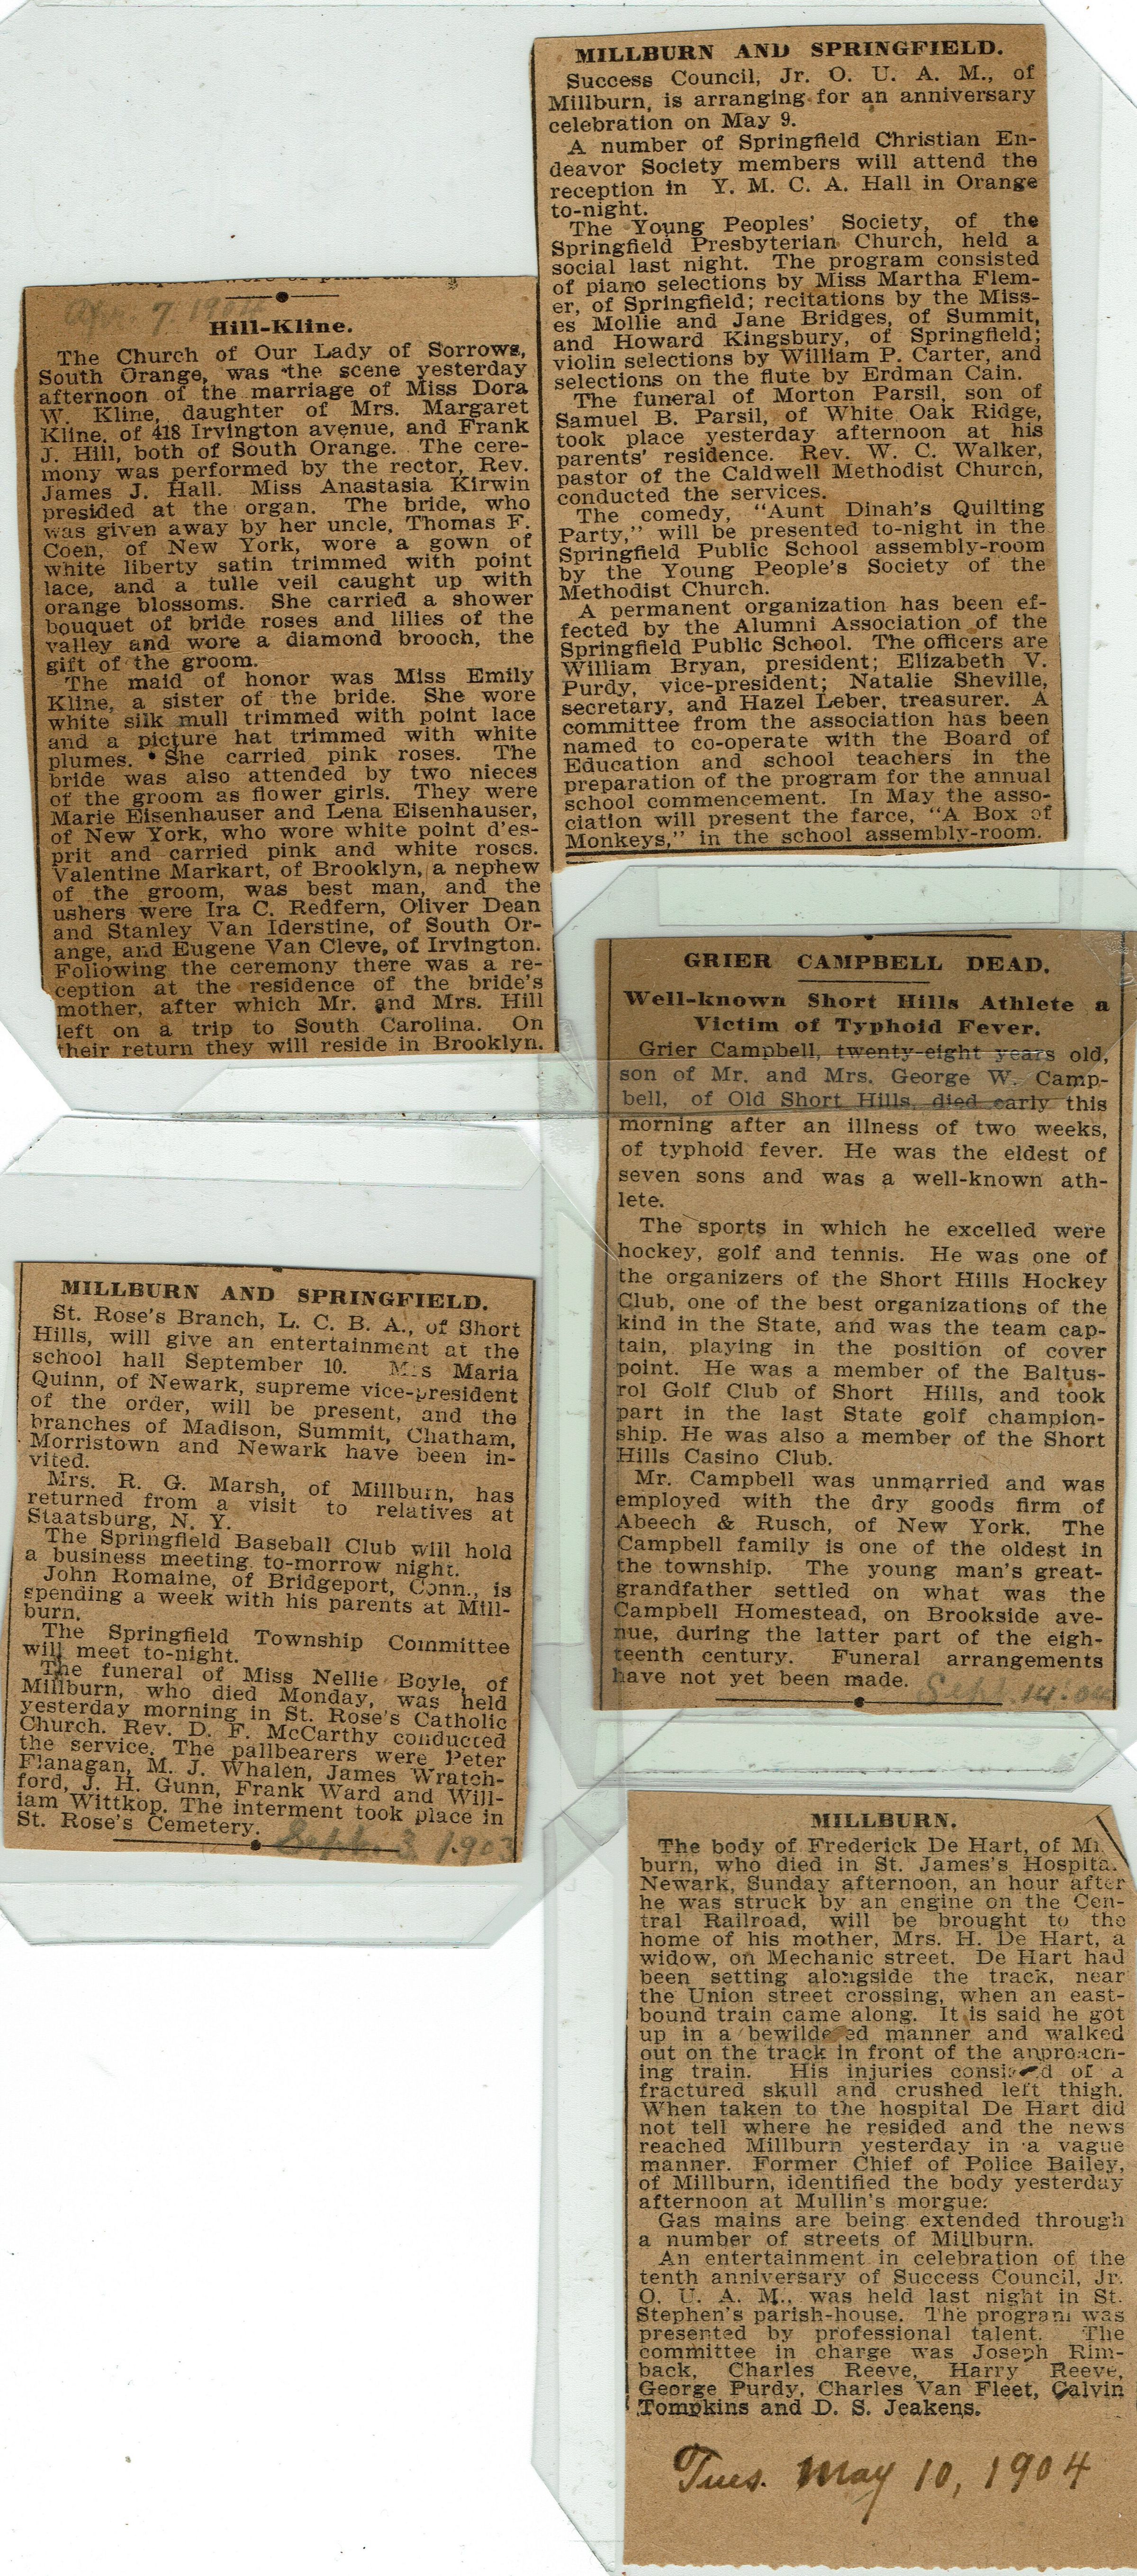 Apr. 7 19
Hill-Kline.
The Church of Our Lady of Sorrows,
South Orange, was the scene yesterday
afternoon of the marriage of Miss Dora
W. Kline, daughter of Mrs. Margaret
Kline, of 418 Irvington avenue, and Frank
J. Hill, both of South Orange. The cere-
mony was performed by the rector, Rev.
James J. Hall. Miss Anastasia Kirwin
presided at the organ. The bride, who
was given away by her uncle, Thomas F.
Coen, of New York, wore a gown of
white liberty satin trimmed with point
lace, and a tulle veil caught up with
orange blossoms. She carried a shower
bouquet of bride roses and lilies of the
valley and wore a diamond brooch, the
gift of the groom.
The maid of honor was Miss Emily
Kline, a sister of the bride. She wore
white silk mull trimmed with point lace
and a picture hat trimmed with white
plumes. She carried pink roses. The
bride was also attended by two nieces
of the groom as flower girls. They were
Marie Eisenhauser and Lena Eisenhauser,
of New York, who wore white point d'es-
prit and carried pink and white roses.
Valentine Markart, of Brooklyn, a nephew
of the groom, was best man, and the
ushers were Ira C. Redfern, Oliver Dean
and Stanley Van Iderstine, of South Or-
ange, and Eugene Van Cleve, of Irvington.
Following the ceremony there was a re-
ception at the residence of the bride's
mother, after which Mr. and Mrs. Hill
left on a trip to South Carolina. On
their return they will reside in Brooklyn.
MILLBURN AND SPRINGFIELD.
Success Council, Jr. O. U. A. M., of
Millburn, is arranging for an anniversary
celebration on May 9.
A number of Springfield Christian En-
deavor Society members will attend the
reception in Y. M. C. A. Hall in Orange
to-night.
The Young Peoples' Society, of the
Springfield Presbyterian Church, held a
social last night. The program consisted
of piano selections by Miss Martha Flem-
er, of Springfield; recitations by the Miss-
es Mollie and Jane Bridges, of Summit,
and Howard Kingsbury, of Springfield;
violin selections by William P. Carter, and
selections on the flute by Erdman Cain.
The funeral of Morton Parsil, son of
Samuel B. Parsil, of White Oak Ridge,
took place yesterday afternoon at his
parents' residence. Rev. W. C. Walker,
pastor of the Caldwell Methodist Church,
conducted the services.
The comedy, "Aunt Dinah's Quilting
Party," will be presented to-night in the
Springfield Public School assembly-room
by the Young People's Society of the
Methodist Church.
A permanent organization has been ef-
fected by the Alumni Association of the
Springfield Public School. The officers are
William Bryan, president; Elizabeth V.
Purdy, vice-president; Natalie Sheville,
secretary, and Hazel Leber, treasurer. A
committee from the association has been
named to co-operate with the Board of
Education and school teachers in the
preparation of the program for the annual
school commencement. In May the asso-
ciation will present the farce, "A Box of
Monkeys," in the school assembly-room.
GRIER CAMPBELL DEAD.
Well-known Short Hills Athlete a
Victim of Typhoid Fever.
Grier Campbell, twenty-eight years old,
son of Mr. and Mrs. George W. Camp-
bell, of Old Short Hills, died early this
morning after an illness of two weeks,
of typhoid fever. He was the eldest of
seven sons and was a well-known ath-
lete.
The sports in which he excelled were
hockey, golf and tennis. He was one of
the organizers of the Short Hills Hockey
Club, one of the best organizations of the
kind in the State, and was the team cap-
tain, playing in the position of cover
point. He was a member of the Baltus-
rol Golf Club of Short Hills, and took
part in the last State golf champion-
ship. He was also a member of the Short
Hills Casino Club.
Mr. Campbell was unmarried and was
employed with the dry goods firm of
Abeech & Rusch, of New York. The
Campbell family is one of the oldest in
the township. The young man's great-
grandfather settled on what was the
Campbell Homestead, on Brookside ave-
nue, during the latter part of the eigh-
teenth century. Funeral arrangements
have not yet been made.
Sept. 14:04
MILLBURN AND SPRINGFIELD.
St. Rose's Branch, L. C. B. A., of Short
Hills, will give an entertainment at the
school hall September 10. Mrs Maria
Quinn, of Newark, supreme vice-president
of the order, will be present, and the
branches of Madison, Summit, Chatham,
Morristown and Newark have been in-
vited.
Mrs. R. G. Marsh, of Millburn, has
returned from a visit to relatives at
Staatsburg, N. Y.
The Springfield Baseball Club will hold
a business meeting to-morrow night.
John Romaine, of Bridgeport, Conn., is
spending a week with his parents at Mill-
burn.
The Springfield Township Committee
will meet to-night.
The funeral of Miss Nellie Boyle, of
Millburn, who died Monday, was held
yesterday morning in St. Rose's Catholic
Church. Rev. D. F. McCarthy conducted
the service. The pallbearers were Peter
Flanagan, M. J. Whalen, James Wratch-
ford, J. H. Gunn, Frank Ward and Will-
iam Wittkop. The interment took place in
St. Rose's Cemetery.
Sept. 3 1903
MILLBURN.
The body of Frederick De Hart, of Mi
burn, who died in St. James's Hospita.
Newark, Sunday afternoon, an hour after
he was struck by an engine on the Cen-
tral Railroad, will be brought to the
home of his mother, Mrs. H. De Hart, a
widow, on Mechanic street. De Hart had
been setting alongside the track, near
the Union street crossing, when an east-
bound train came along. It is said he got
up in a bewildered manner and walked
out on the track in front of the approach-
ing train. His injuries consisted of a
fractured skull and crushed left thigh.
When taken to the hospital De Hart did
not tell where he resided and the news
reached Millburn yesterday in a vague
manner. Former Chief of Police Bailey,
of Millburn, identified the body yesterday
afternoon at Mullin's morgue.
Gas mains are being extended through
a number of streets of Millburn.
An entertainment in celebration of the
tenth anniversary of Success Council, Jr.
O. U. A. M., was held last night in St.
Stephen's parish-house. The program was
presented by professional talent. The
committee in charge was Joseph Rim-
back, Charles Reeve, Harry Reeve,
George Purdy, Charles Van Fleet, Calvin
Tompkins and D. S. Jeakens.
Tues. May 10, 1904